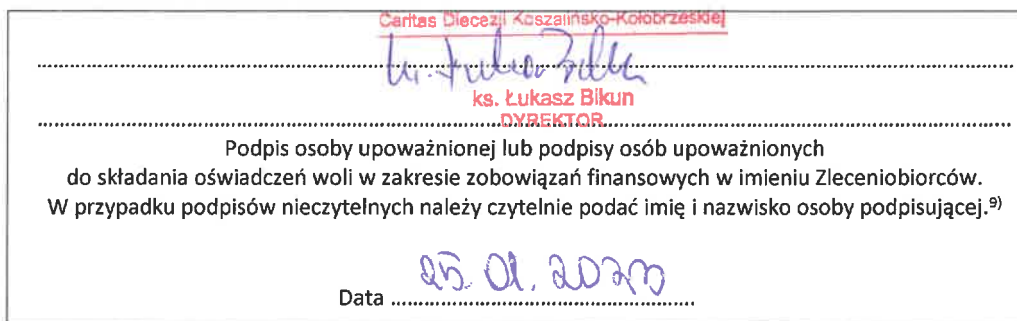 Caritas Diecezji Koszalińsko-Kołobrzeskiej
ks. Łukasz Bikun
DYREKTOR
Podpis osoby upoważnionej lub podpisy osób upoważnionych
do składania oświadczeń woli w zakresie zobowiązań finansowych w imieniu Zleceniobiorców.
W przypadku podpisów nieczytelnych należy czytelnie podać imię i nazwisko osoby podpisującej.⁹⁾
25.01.
Data